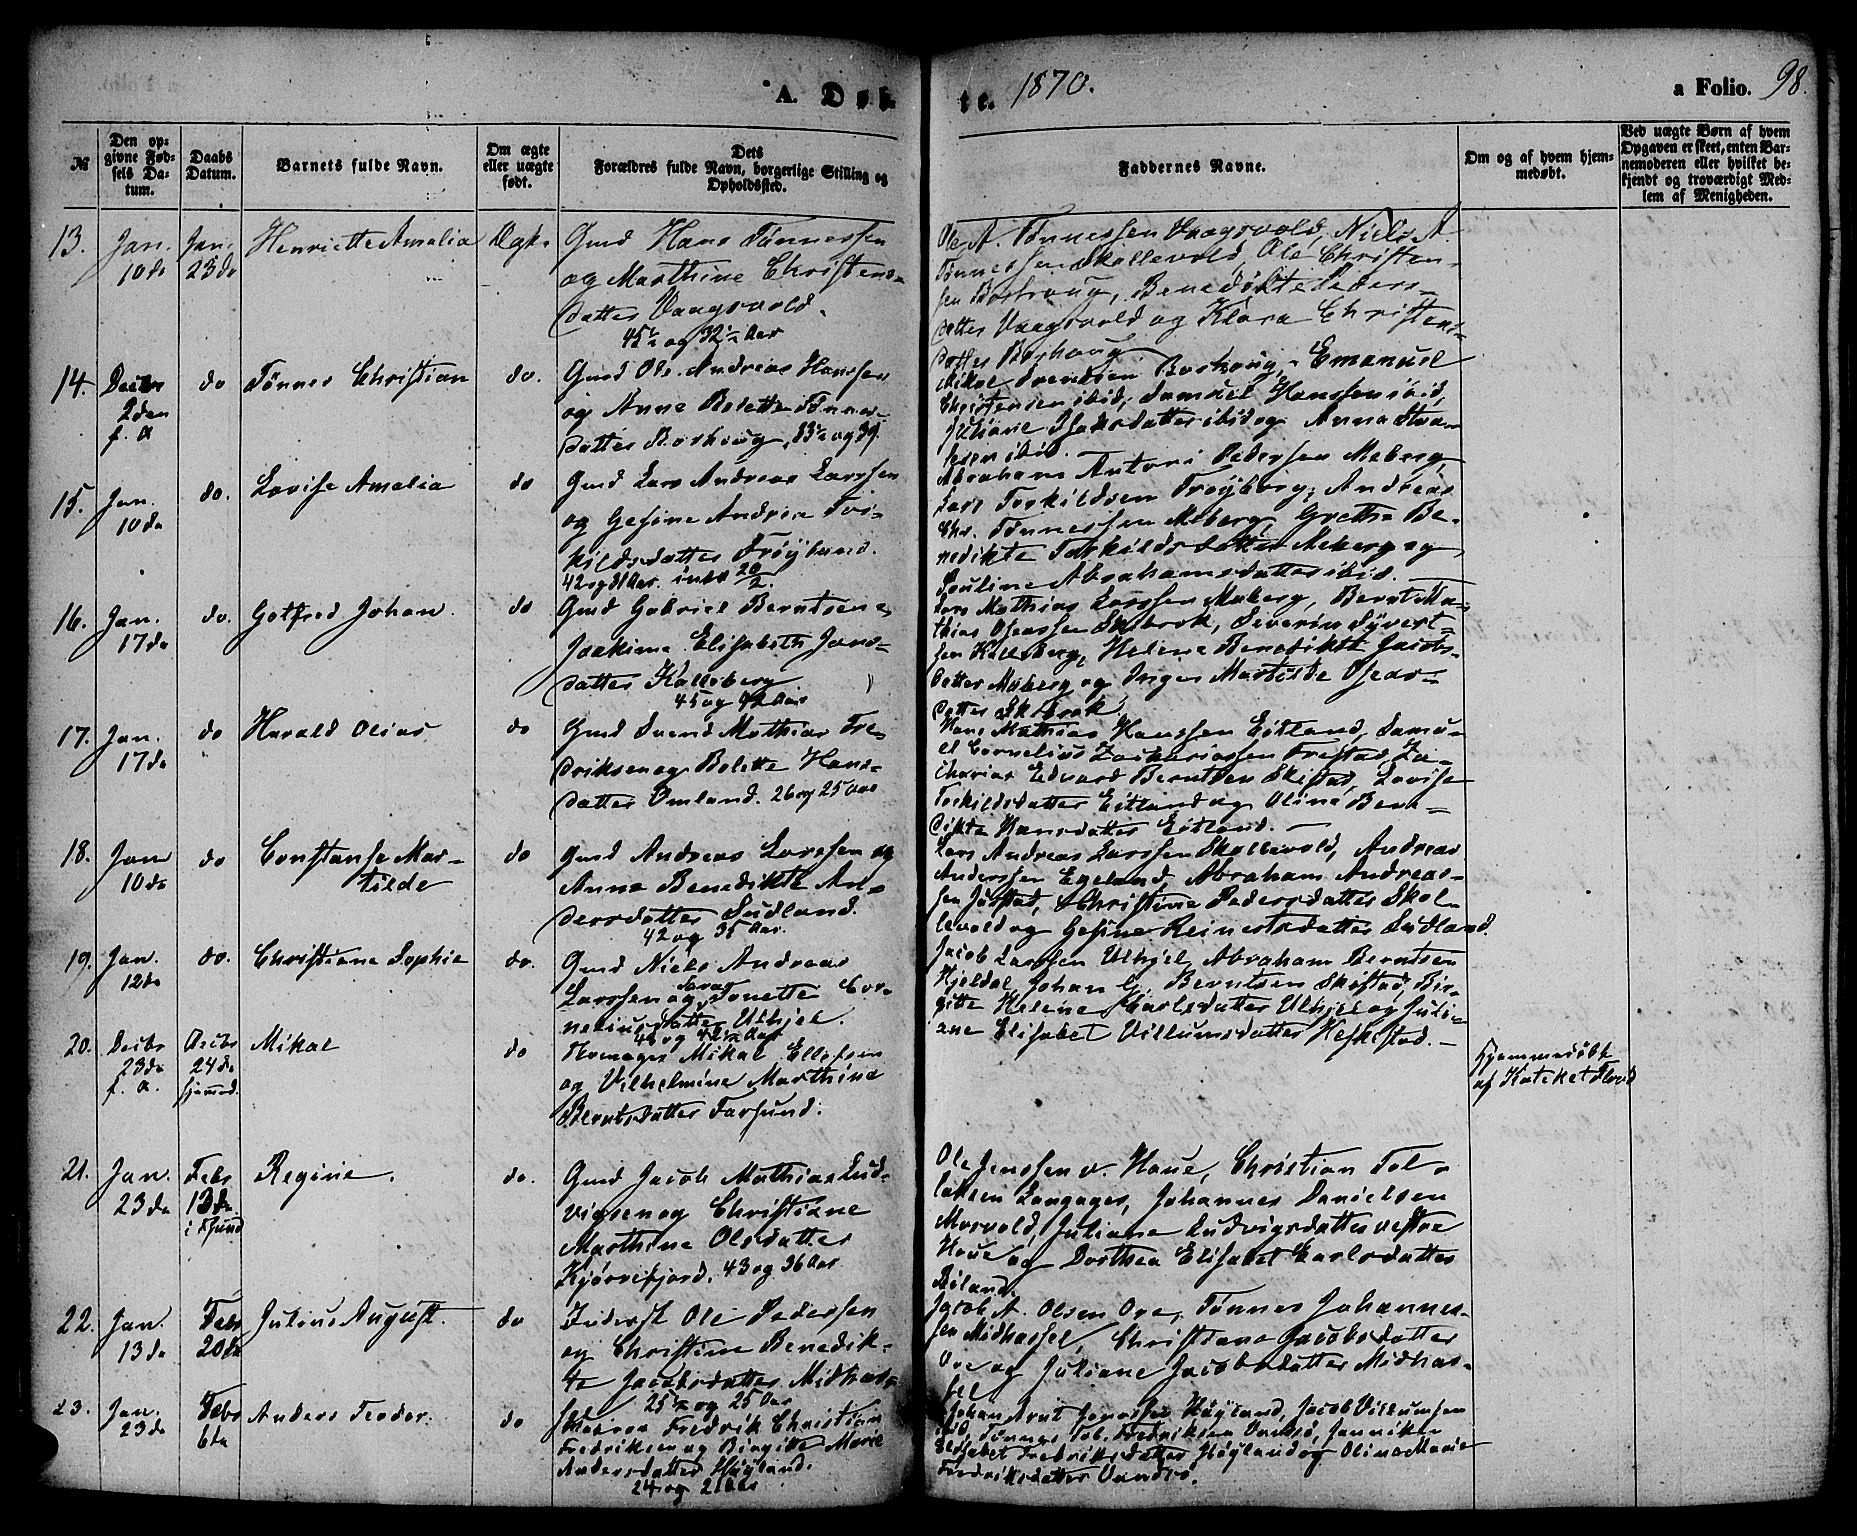 A. Døb-
te. 1870.
a Folio. 98.
№
Den op-
givne Fød-
sels Da-
tum.
Daabs
Datum.
Barnets fulde Navn.
Om ægte
eller uægte
født.
Dets
Forældres fulde Navn, borgerlige Stilling og
Opholdssted.
Faddernes Navne.
Om og af hvem hjem-
medøbt.
Ved uægte Børn af hvem
Opgaven er skeet, enten Bar-
nemoderen eller hvilket be-
kjendt og troværdigt Med-
lem af Menigheden.
13. Jan. 10de
Jan. 23de
Henriette Amalia
Ægte
Gmd Hans Tønnessen
og Marthine Christens-
datter Vaagsvold.
45½ og 32½ Aar
Ole A. Tønnessen Vaagsvold, Niels A.
Tønnessen Skollevold, Ole Christen-
sen Borhoug, Benedikte Peders-
datter Vaagsvold og Klara Christens-
datter Borhoug
14. Decbr 2den f. A
do
Tønnes Christian
do.
Gmd Ole Andreas Hanssen
og Anne Bolette Tønnes-
datter Borhoug, 33½ og 39.
Mikal Svendsen Borhoug, Emanuel
Christensen ibid, Samuel Hanssen ibid,
Juliane Isaksdatter ibid og Anna
ibid.
15. Jan. 10de
do.
Lovise Amalia
do
Gmd Lars Andreas Larssen
og Gesine Andrea Tor-
kildsdatter Frøyland.
42 og 31 Aar. intr 20/2.
Abraham Antoni Pedersen Meberg,
Lars Torkildsen Andreas
Chr. Tønnessen Meberg, Grethe Be-
nedikte Torkildsdatter Meberg og
Pauline Abrahamsdatter ibid.
16. Jan. 17de
do.
Gotfred Johan.
do
Gmd Gabriel Berntsen
Joakime Elisabeth Jans-
datter Kalleberg
45 og 42 Aar
Lars Mathias Larssen Meberg, Bernt Ma-
thias Oseassen Skibrok, Severin Syvert-
sen Kalleberg, Helene Benedikte Jacobs-
datter Meberg og Inger Martilde Osear-
datter Skibrok
17. Jan. 17de
do
Harald Olias
do
Gmd Svend Mathias Fre-
driksen og Bolette Hans-
datter Omland. 26 og 25 Aar
Hans Mathias Hanssen Eitland, Samu-
el Cornelius Zachariassen Frestad, Za-
charias Edvard Berntsen Skistad, Lovise
Torkildsdatter Eitland og Oline Bene-
dikte Hansdatter Eitland.
18. Jan 10de
do
Constanse Mar-
tilde
do
Gmd Andreas Larssen og
Anna Benedikte An-
dersdatter Sudland.
42 og 35 Aar.
Lars Andreas Larssen Skollevold, Andreas
Anderssen Egeland, Abraham Andreas-
sen Jøstad, Christine Pedersdatter Skol-
levold og Gesine Reinertsdatter Sudland.
19. Jan. 12de
do.
Christiane Sophie
do.
Gmd Niels Andreas
Larssen og Sara Tonette Cor-
neliusdatter Ulhjel.
42½ Aar
Jacob Larssen Ulhjel, Abraham Berntsen
Hjeldal, Johan G. Berntsen Skistad, Bir-
gitte Helene Karlsdatter Ulhjel og Juli-
ane Elisabet Villumsdatter Heskestad.
20. Decbr 23de f. A.
Decbr 24de hjemd.
Mikal
do
Mikal Ellefsen
og Vilhelmine Marthine
Berntsdatter Farsund.
Hjemmedøbt
af Kateket
21. Jan. 23de
Febr 13de i Fsund
Regine.
do.
Gmd Jacob Mathias Lud-
vigsen og Christiane
Marthine Olsdatter
Kjørrefjord, 43 og 36 Aar
Ole Jenssen v. Haue, Christian Tol-
laksen Langager, Johannes Danielsen
Morvold, Juliane Ludvigsdatter vestre
Haue og Dorthea Elisabet Carlsdatter
22. Jan. 13de
Febr 20de
Julius August.
do
Inderst Ole Pedersen
og Christine Benedik-
te Jacobsdatter Midhas-
sel 25½ og 25 Aar
Jacob A. Olsen Ore, Tønnes Johannes-
sen Midhassel, Christiane Jacobsdatter
Ore og Juliane Jacobsdatter Midhas-
sel
23. Jan. 23de
Febr 6te
Anders Teodor.
do
Fredrik Christian
Fredriksen og Birgitte Marie
Andersdatter Høyland.
24 og 21 Aar
Johan Høyland, Jacob Villumsen
ibid, Tønnes Tob. Fredriksen
Elisabet Fredriksdatter Høyland og Olina Marie
Fredriksdatter